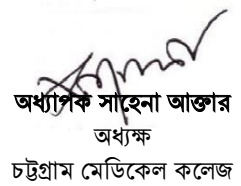 অধ্যাপক সাহেনা আক্তার
অধ্যক্ষ
চট্টগ্রাম মেডিকেল কলেজ